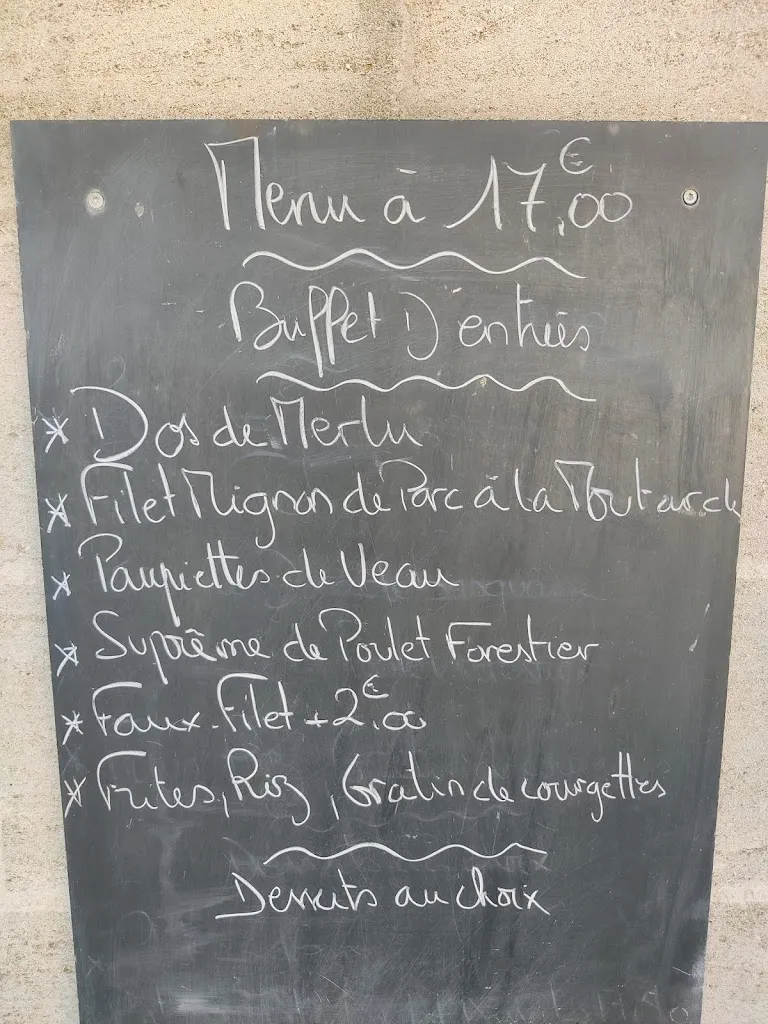 Menu à 17,00€
Buffet D'entrées
* Dos de Merlu
* Filet Mignon de Porc à la Moutarde
* Paupiettes de Veau
* Suprême de Poulet Forestier
* Faux-Filet + 2,00€
* Frites, Riz, Gratin de courgettes
Desserts au choix